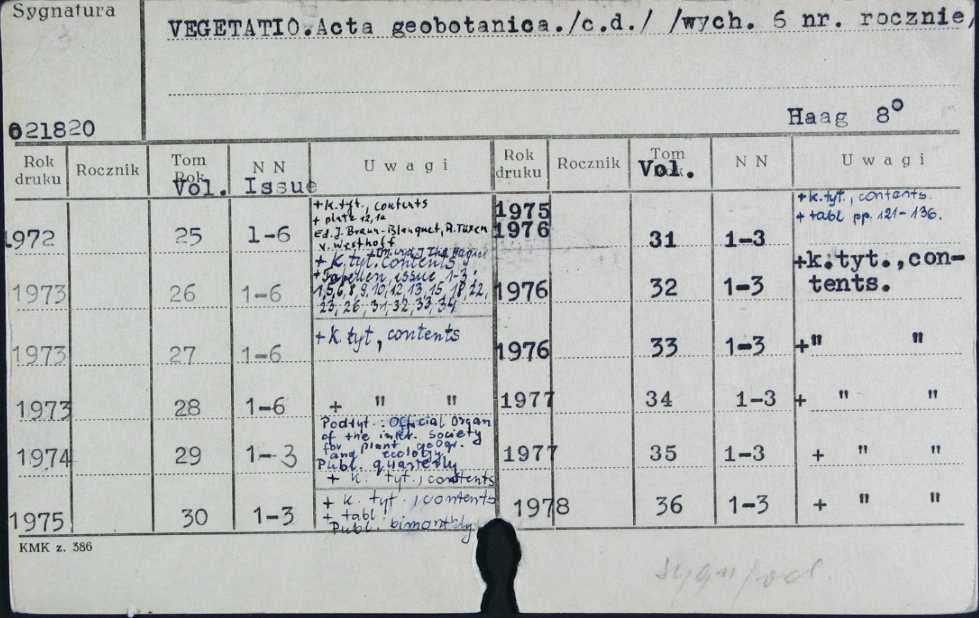 Sygnatura
VEGETATIO.Acta geobotanica./c.d./ /wych. 6 nr. rocznie/
021820
Haag 8°
Rok druku Rocznik Tom Rok N N Uwagi Rok druku Rocznik Tom Rok N N Uwagi
Vol. Issue Vol.
1972 25 1-6
+ k. tyt., contents
+ plate 12,12
Ed. J. Braun-Blanquet, R. Tüxen
V. Westhoff
1973 26 1-6
The Hague
+ k. tyt. contents
+ Tabellen issue 1-3:
1,5,6,8,9,10,12,13,15,18,22,
23,26,31,32,33,34
1973 27 1-6 + k. tyt, contents
1973 28 1-6 + " "
1974 29 1-3
Podtyt.: Official Organ
of the inter. Society
for plant geogr.
and ecology
Publ. quarterly
+ k. tyt., contents
1975 30 1-3
+ k. tyt., contents
+ tabl.
Publ. bimonthly
1975
1976 31 1-3
+ k. tyt., contents
+ tabl pp. 121-136.
1976 32 1-3 +k.tyt.,con-
tents.
1976 33 1-3 +" "
1977 34 1-3 + " "
1977 35 1-3 + " "
1978 36 1-3 + " "
KMK z. 386